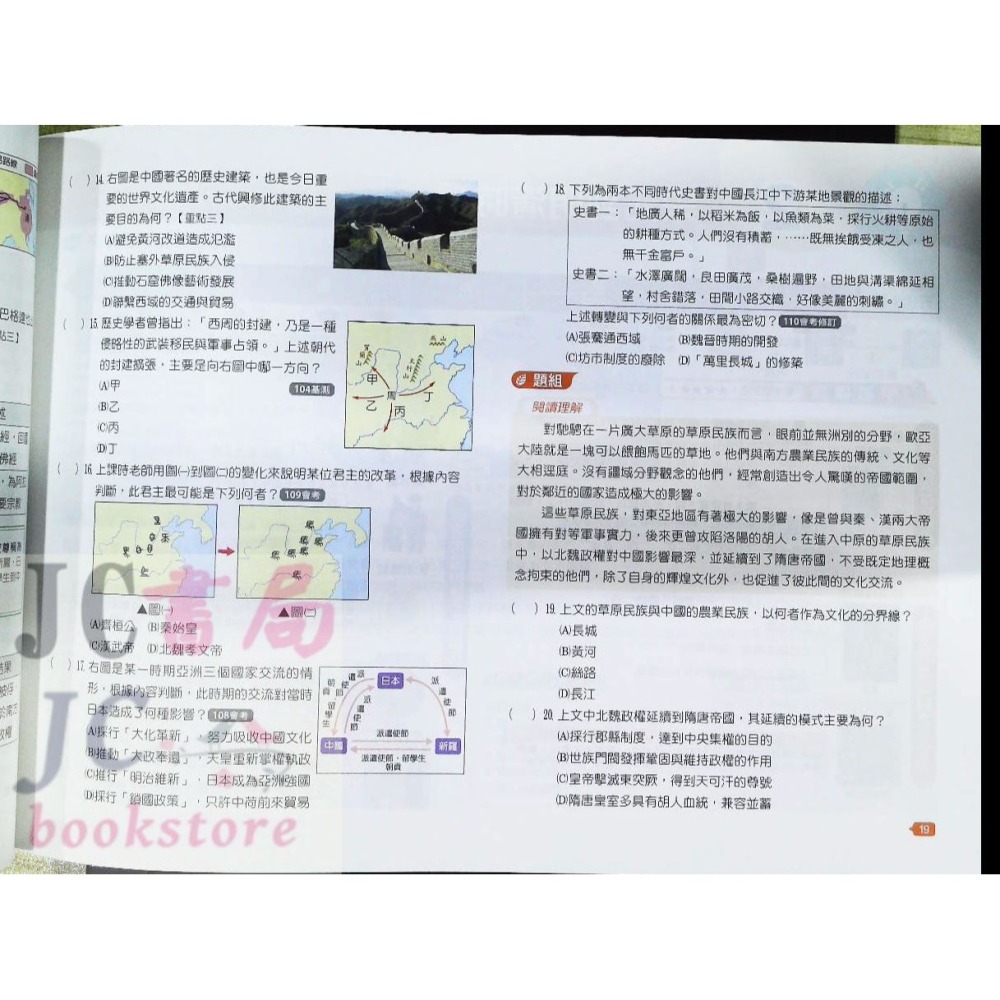 ( ) 14. 右圖是中國著名的歷史建築，也是今日重
要的世界文化遺產。古代興修此建築的主
要目的為何？【重點三】
(A)避免黃河改道造成氾濫
(B)防止塞外草原民族入侵
(C)推動石窟佛像藝術發展
(D)聯繫西域的交通與貿易
( ) 15. 歷史學者曾指出：「西周的封建，乃是一種
侵略性的武裝移民與軍事占領。」上述朝代
的封建擴張，主要是向右圖中哪一方向？
104基測
(A)甲
(B)乙
(C)丙
(D)丁
甲
乙
周
丙
丁
( ) 16. 上課時老師用圖(一)到圖(二)的變化來說明某位君主的改革，根據內容
判斷，此君主最可能是下列何者？ 109會考
▲圖(一) ▲圖(二)
(A)齊桓公 (B)秦始皇
(C)漢武帝 (D)北魏孝文帝
( ) 17. 右圖是某一時期亞洲三個國家交流的情
形，根據內容判斷，此時期的交流對當時
日本造成了何種影響？ 108會考
(A)採行「大化革新」，努力吸收中國文化
(B)推動「大政奉還」，天皇重新掌權執政
(C)推行「明治維新」，日本成為亞洲強國
(D)採行「鎖國政策」，只許中荷前來貿易
日本
派遣使節
朝貢、留學生
派遣使節
派遣使節
派遣使節
中國
新羅
派遣使節、留學生
朝貢
( ) 18. 下列為兩本不同時代史書對中國長江中下游某地景觀的描述：
史書一：「地廣人稀，以稻米為飯，以魚類為菜，採行火耕等原始
的耕種方式。人們沒有積蓄，……既無挨餓受凍之人，也
無千金富戶。」
史書二：「水澤廣闊，良田廣茂，桑樹遍野，田地與溝渠綿延相
望，村舍錯落，田間小路交織，好像美麗的刺繡。」
上述轉變與下列何者的關係最為密切？ 110會考修訂
(A)張騫通西域 (B)魏晉時期的開發
(C)坊市制度的廢除 (D)「萬里長城」的修築
題組
閱讀理解
對馳騁在一片廣大草原的草原民族而言，眼前並無洲別的分野，歐亞
大陸就是一塊可以餵飽馬匹的草地。他們與南方農業民族的傳統、文化等
大相逕庭。沒有疆域分野觀念的他們，經常創造出令人驚嘆的帝國範圍，
對於鄰近的國家造成極大的影響。
這些草原民族，對東亞地區有著極大的影響，像是曾與秦、漢兩大帝
國擁有對等軍事實力，後來更曾攻陷洛陽的胡人。在進入中原的草原民族
中，以北魏政權對中國影響最深，並延續到了隋唐帝國，不受既定地理概
念拘束的他們，除了自身的輝煌文化外，也促進了彼此間的文化交流。
( ) 19. 上文的草原民族與中國的農業民族，以何者作為文化的分界線？
(A)長城
(B)黃河
(C)絲路
(D)長江
( ) 20. 上文中北魏政權延續到隋唐帝國，其延續的模式主要為何？
(A)採行郡縣制度，達到中央集權的目的
(B)世族門閥發揮鞏固與維持政權的作用
(C)皇帝擊滅東突厥，得到天可汗的尊號
(D)隋唐皇室多具有胡人血統，兼容並蓄
19
JC書局
JC
bookstore